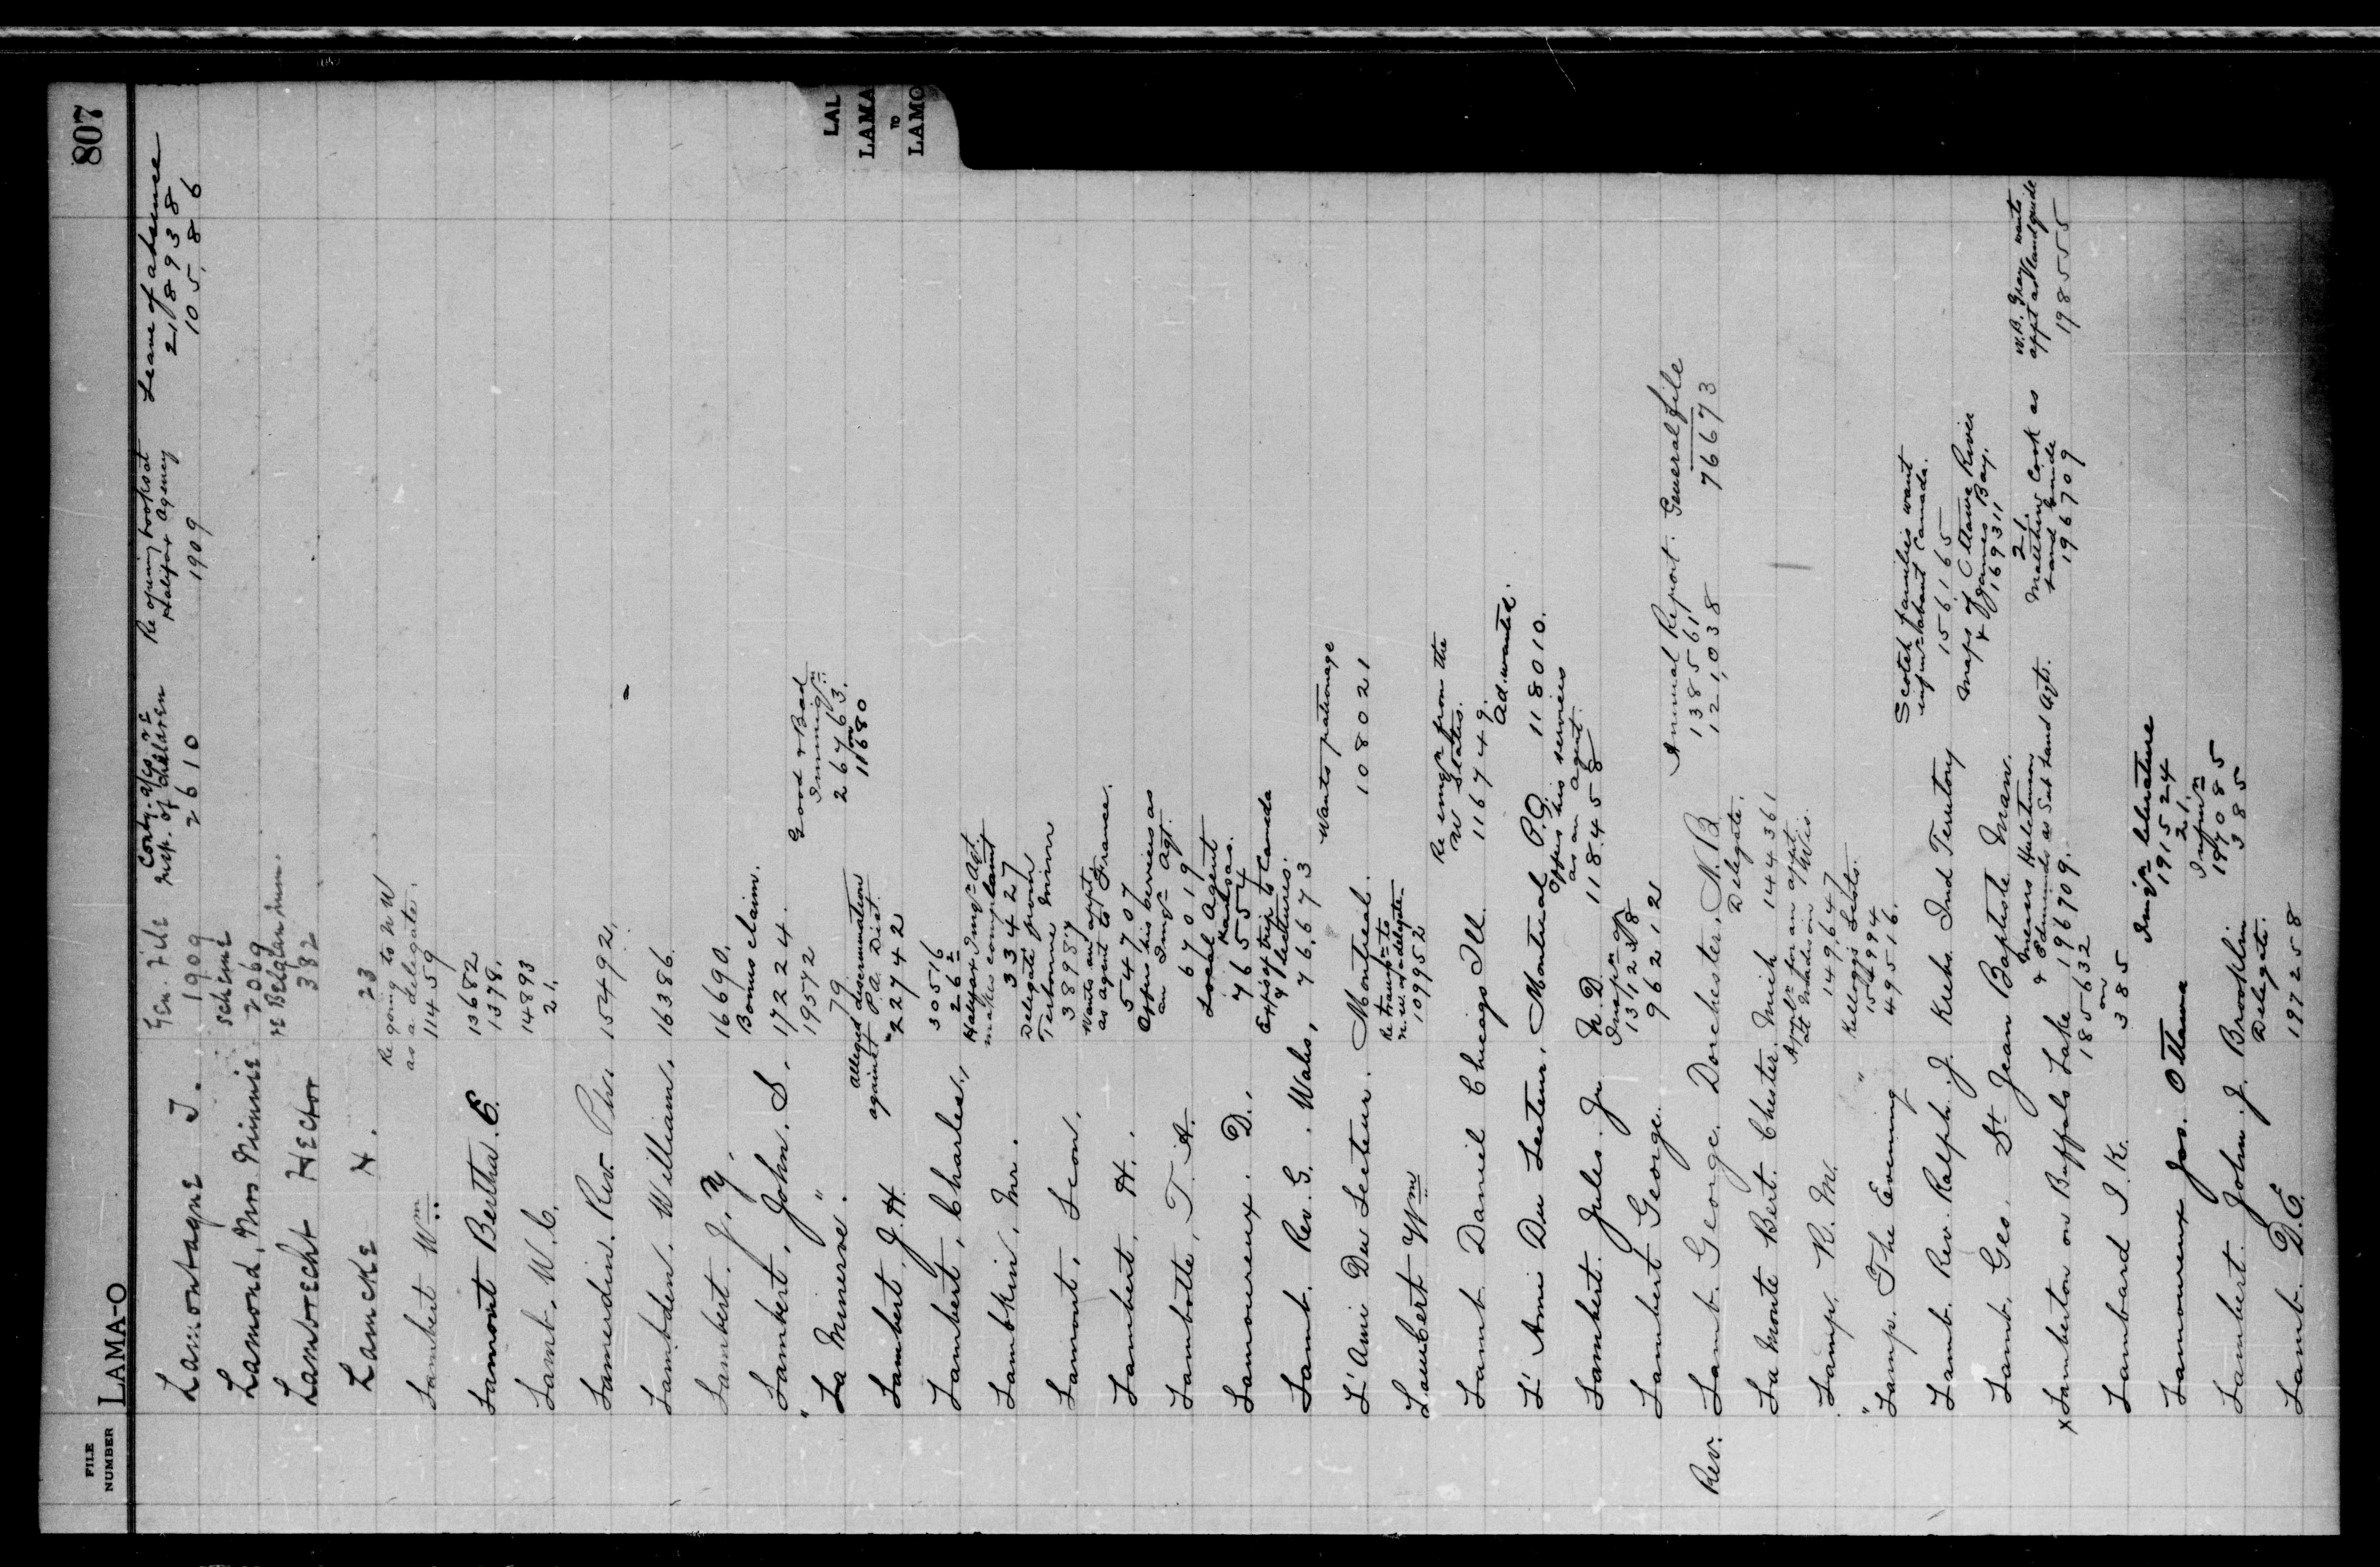 807
FILE NUMBER
LAMA-O
LAL
LAMA
TO
LAMO
Lamontagne J. Gen. File 1909
Insp. of children 2610
Re opening books at Halifax Agency 1909
Leave of absence 218938
105,886
Lamond, Mrs Minnie scheme 2069
Lambrecht Hector re Belgian imm. 382
Lamcke H. 23
Re going to N W as a delegate.
Lambert Wm 11459
Lamont Bertha. E. 13682
1378.
Lamb. W. C. 14893
21.
Lamerdin. Rev. 15492.
Lamboden. William. 16386.
Lambert. J. Y. 16690.
Bonus claim.
Lambert, John. S. 17224.
" " 19572
Good & Bad Immigrn. 267763.
on 11680
La Minerve. 79
alleged discrimination against P.A. Dist.
Lambert, J. H. 22742
30516
Lambert, Charles., 262
Halifax Immgn Agt. makes complaint
Lambkin, Mr. 33427
Delegate from Terbonne Minn
Lamont, Leon. 38987
Wants an appt. as agent to France.
Lambert, H. 54707
Offers his services as an Immgn Agt.
Lambotte, T. A. 67019
Local Agent Kansas.
Lamoureux. D., 76554
Exps of trip to Canada & lectures.
Lamb. Rev. G. . Waho, 76,673
Wants patronage
L'Ami Du Lecteur. Montreal. 108021
Re transpn to N.W. of delegate
Lambert Wm 109952
Re immgn from the W States.
Lamb Daniel Chicago Ill. 116749.
Ad. wanted.
L'Ami Du Lecteur, Montreal P.Q. 118010.
Offers his services as an agent.
Lambert. Jules. Jr N.D. 118458
131,228
Lambert George. 96212
Annual Report. General file
138561 76673
121,038
Rev. Lamb. George. Dorchester, N.B.
Delegate.
La Monte Bert. Chester. Mich 144361
Appln for an appt. at Madison Wis.
Lamp. R. M. 149,647
Kelloggs Lists.
" Lamp. The Evening " 154994
49516.
Scotch families want infmn about Canada.
Lamb. Rev. Ralph. J. Krebs. Ind Territory 156165
Maps of Ottawa River & James Bay.
Lamb. Geo. St Jean Baptiste Man. 169311
21.
Messrs Huletman & Edmunds as Sub Land Agt.
Matthew Cook as Land Guide
W.B. Gray wants appt as land guide
x Lamberton on Buffalo Lake 196709. 196709 198555
185632
on
Lambard J. K. 385
Immgn literature
Lamoureux Jos. Ottawa 191524
21.
Infmn
Lambert. John. J. Brooklin 197085
Delegate. 385
Lamb. D. E. 197258